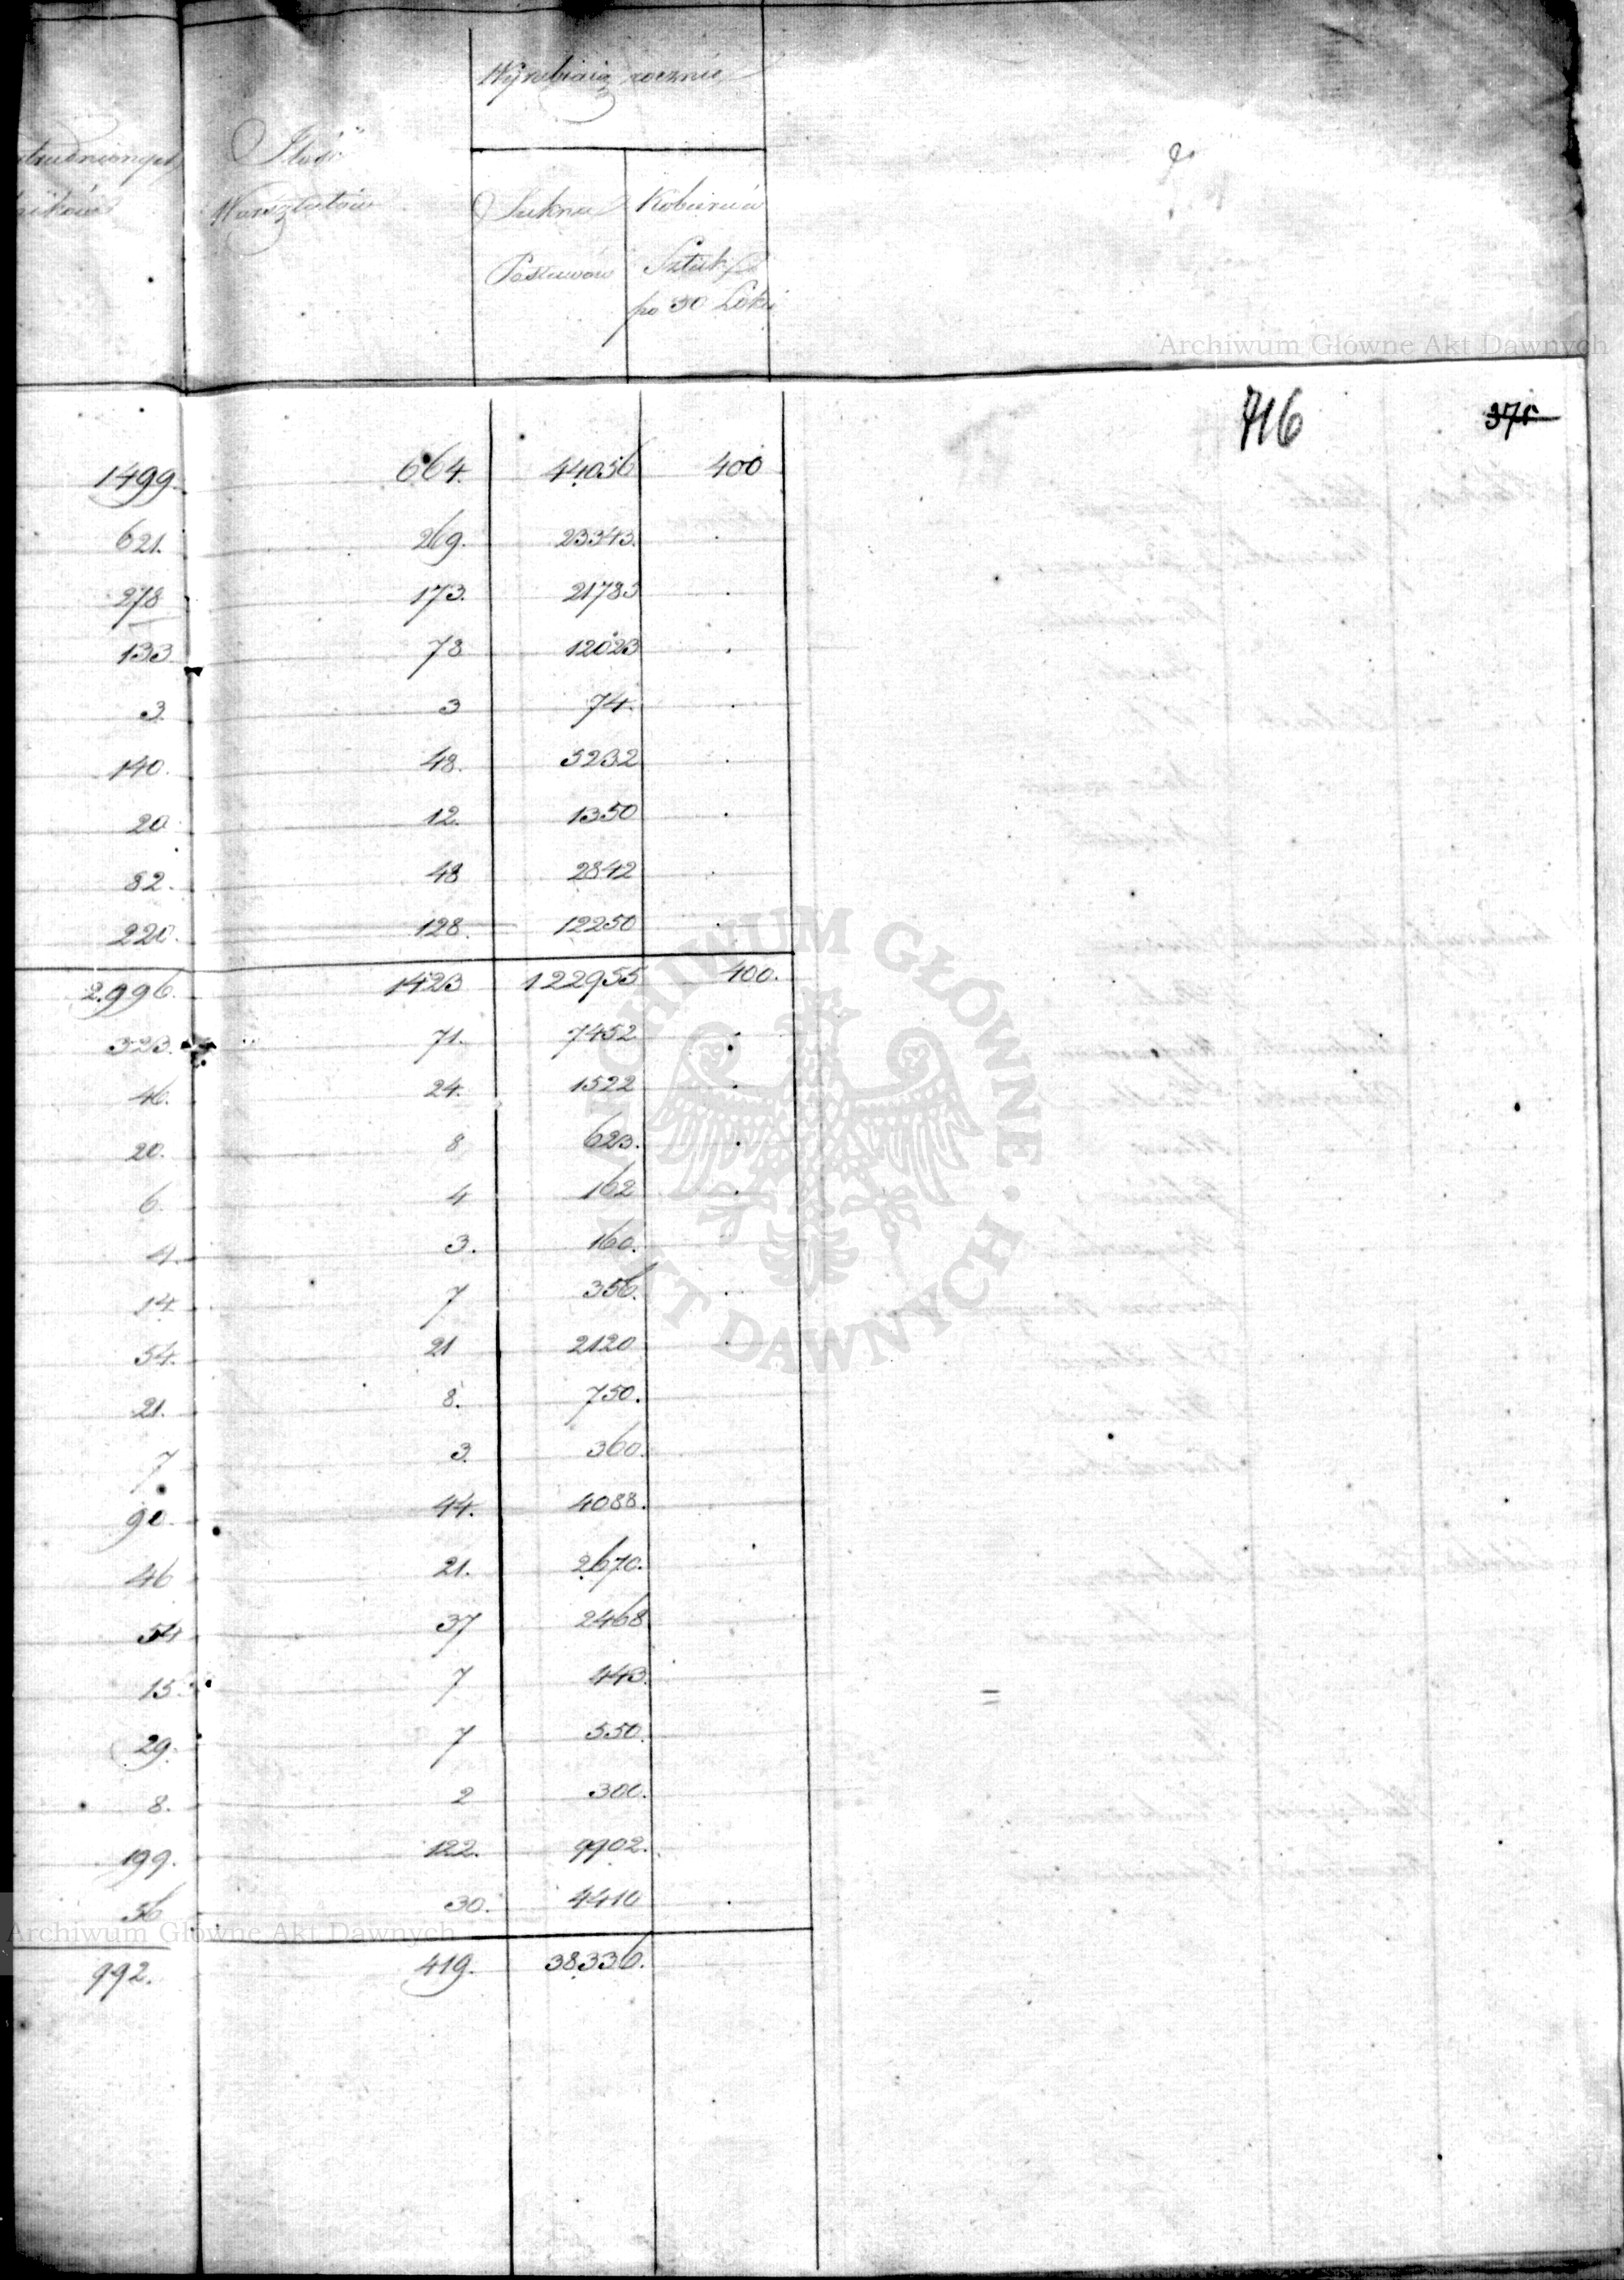 Wyrabiaią rocznie
Ilość
Warsztatów
Sukna
Postawów
Kobierców
Sztuk
po 30 Łokci
Archiwum Główne Akt Dawnych
716
371
1499. 664. 44056 400
621. 269. 23343. .
278 173. 21783 .
133 78 12023 .
3. 3 74. .
140. 48. 5232 .
20 12. 1350 .
82. 48 2842 .
220. 128. 12250 .
2.996. 1423 122955 400.
323. 71. 7452 .
46. 24. 1522 .
20. 8 623. .
6. 4 162 .
4. 3. 160.
14. 7 356. .
54. 21 2120 .
21. 8. 750.
7 3. 360.
90. 44. 4088.
46 21. 2670.
54 37 2468
15. 7 443.
29. 7 550.
8. 2 300.
199. 122. 9902.
56 30. 4410 .
992. 419. 38336.
ARCHIWUM GŁÓWNE • AKT DAWNYCH
Archiwum Główne Akt Dawnych